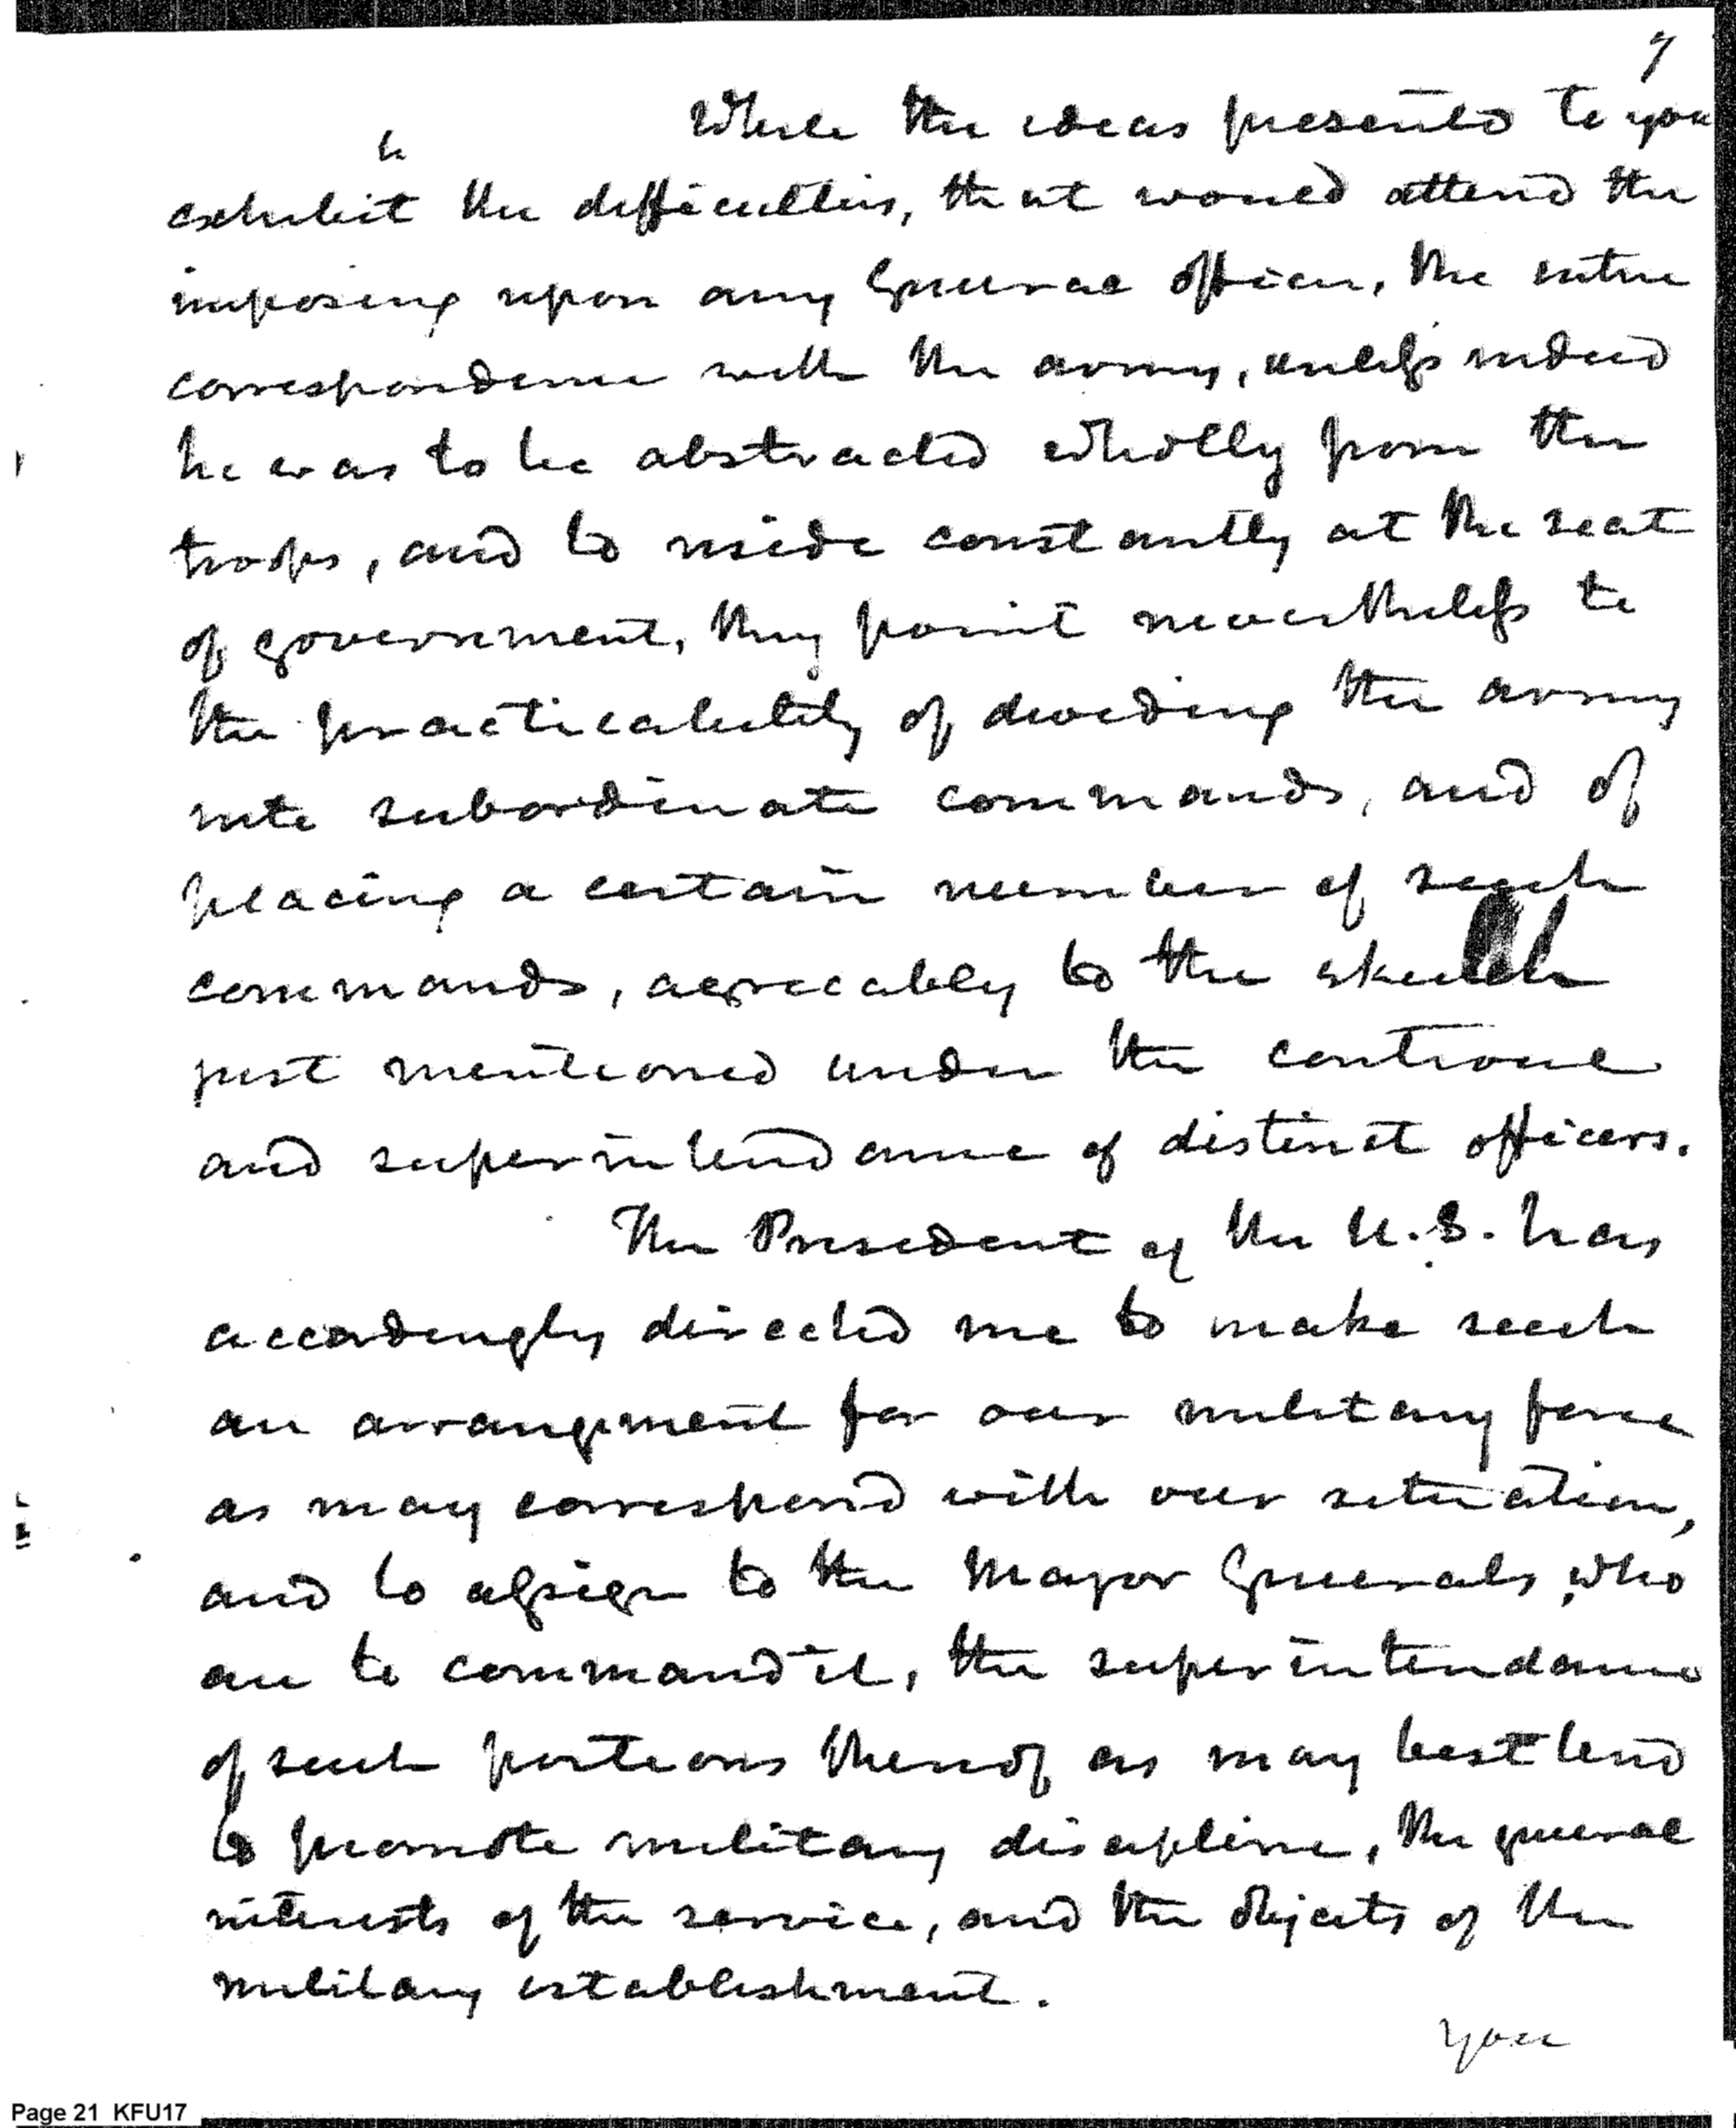 7
While the ideas presented to you
h
exhibit the difficulties, that would attend the
imposing upon any General officer, the entire
correspondence with the army, unless indeed
he was to be abstracted wholly from the
troops, and to reside constantly at the seat
of government, they point nevertheless to
the practicability of dividing the army
into subordinate commands, and of
placing a certain number of such
commands, agreeably to the sketch
just mentioned under the controul
and superintendance of distinct officers.
The President of the U.S. has
accordingly directed me to make such
an arrangement for our military force
as may correspond with our situation,
and to assign to the Major Generals, who
are to command it, the superintendance
of such portions thereof as may best tend
to promote military discipline, the general
interests of the service, and the objects of the
military establishment.
you
Page 21 KFU17